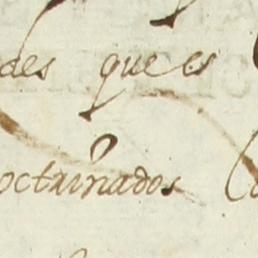 des que es
octrinados